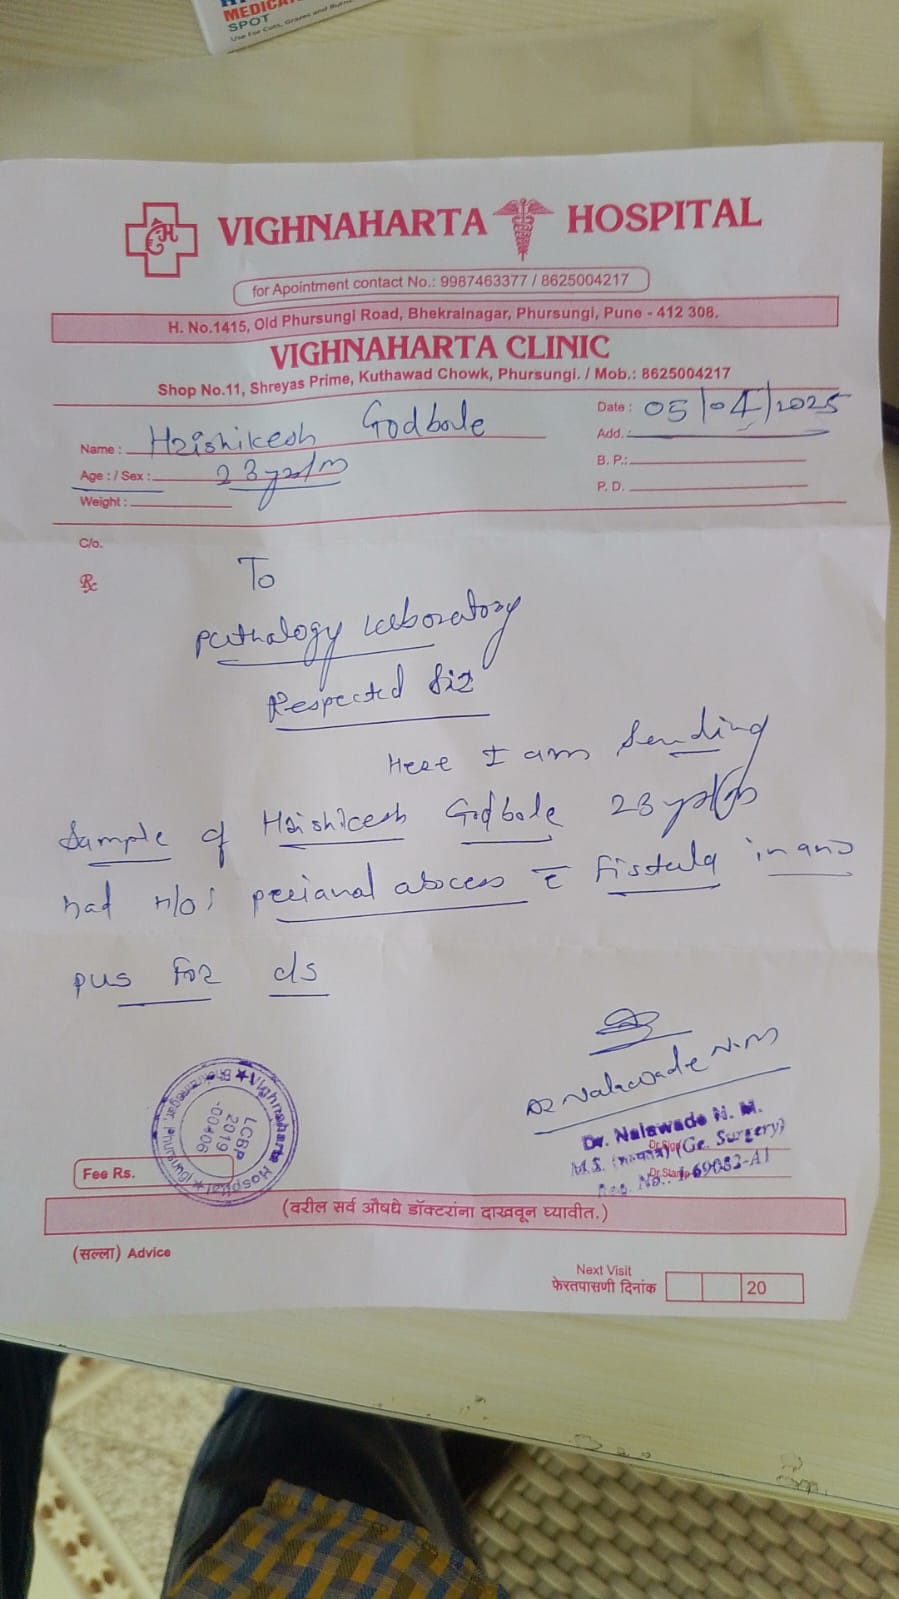 MEDICA
SPOT
Use For Cuts, Grazes and Burns
VIGHNAHARTA HOSPITAL
for Apointment contact No.: 9987463377 / 8625004217
H. No.1415, Old Phursungi Road, Bhekrainagar, Phursungi, Pune - 412 308.
VIGHNAHARTA CLINIC
Shop No.11, Shreyas Prime, Kuthawad Chowk, Phursungi. / Mob.: 8625004217
Date : 05/04/2025
Name : Hrishikesh Godbole
Add. :
Age : / Sex : 23 yrs/m
B. P.:
Weight :
P. D.
C/o.
Rx
To
Pathology Laboratory
Respected Sir
Here I am Sending
Sample of Hrishikesh Godbole 23 yrs/m
had H/O perianal abscess c̄ Fistula in ano
pus For c/s
Dr Nalawade N.M
Dr. Nalawade N. M.
M.S. (Ge. Surgery)
Reg. No.: I-69082-A1
Dr. Sign
Dr. Stamp
Vighnaharta Hospital ★ Bhekrainagar, Phursungi ★
LCBP
2019
-00406
Fee Rs.
(वरील सर्व औषधे डॉक्टरांना दाखवून घ्यावीत.)
(सल्ला) Advice
Next Visit
फेरतपासणी दिनांक 20